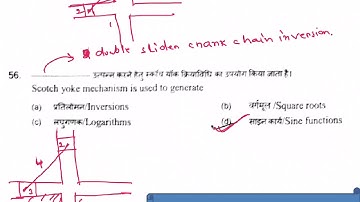 1
double slider crank chain inversion.
56. ............ उत्पन्न करने हेतु स्कॉच यॉक क्रियाविधि का उपयोग किया जाता है।
Scotch yoke mechanism is used to generate
(a) प्रतिलोमन/Inversions (b) वर्गमूल/Square roots
(c) लघुगणक/Logarithms (d) साइन कार्य/Sine functions
4
3
2